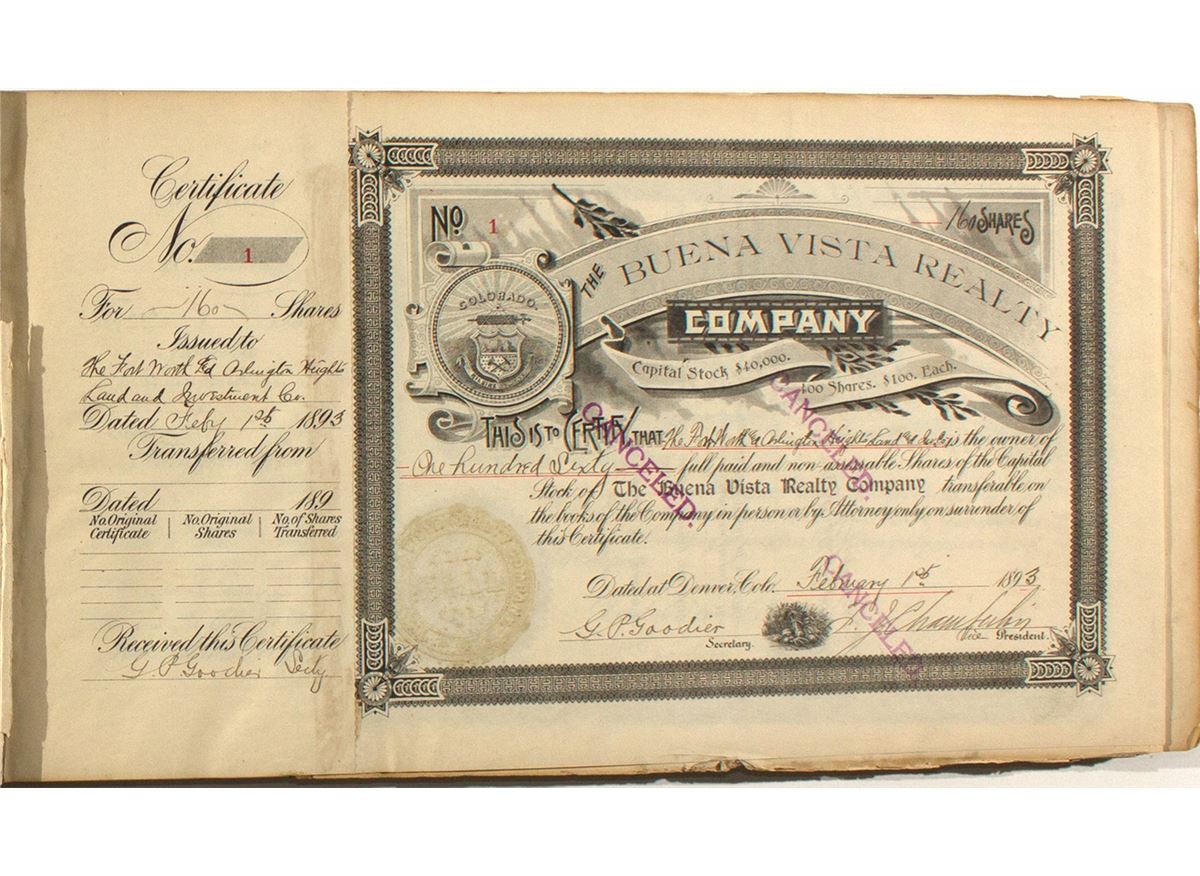 Certificate
No. 1
For 160 Shares
Issued to
The Fort Worth Ed Arlington Heights
Land and Investment Co.
Dated Feby 1st 1893
Transferred from
Dated 189
No. Original Certificate | No. Original Shares | No. of Shares Transferred
Received this Certificate
G. P. Goodier Secty
No 1
160 SHARES
COLORADO
THE BUENA VISTA REALTY
COMPANY
Capital Stock $40,000.
400 Shares. $100. Each.
THIS IS TO CERTIFY THAT The Fort Worth Ed Arlington Heights Land Ed is the owner of
One hundred Sixty full paid and non-assessable Shares of the Capital
Stock of The Buena Vista Realty Company transferable on
the books of the Company in person or by Attorney only on surrender of
this Certificate.
Dated at Denver, Colo. February 1st 1893
G. P. Goodier
Secretary.
J. Chamberlin
Vice President.
CANCELED.
CANCELED.
CANCELED.